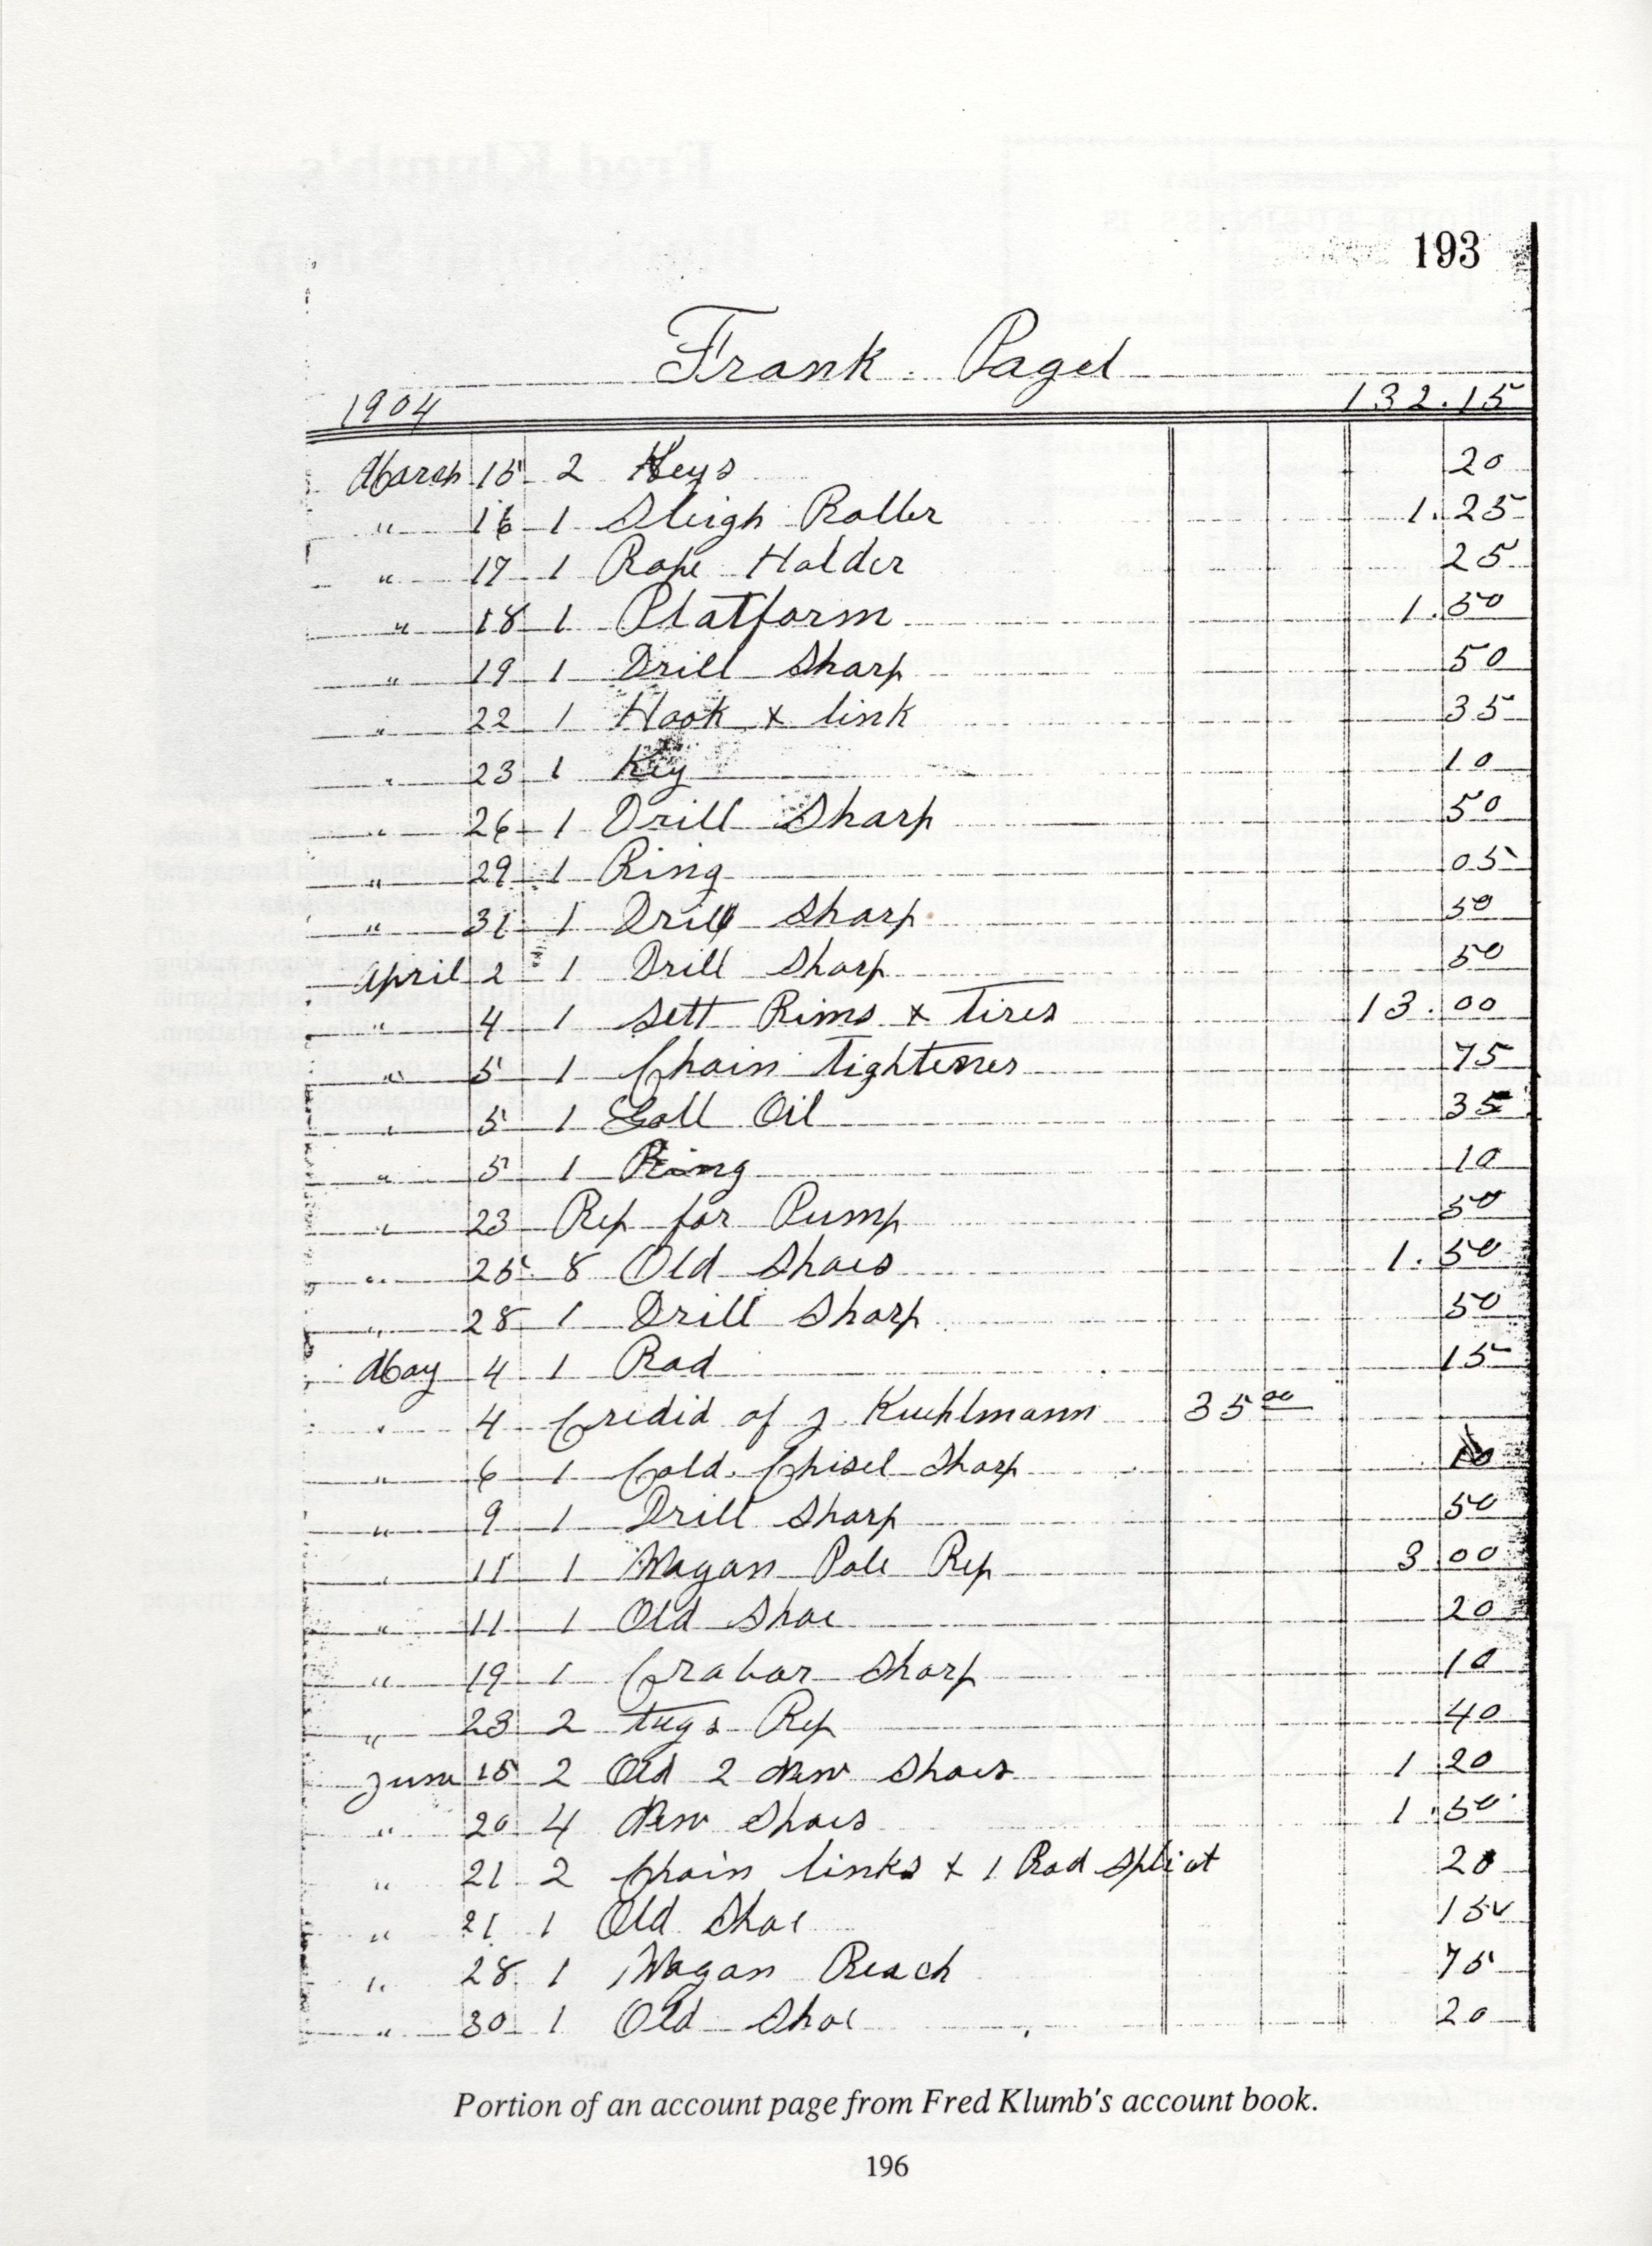 193
Frank Pagel
1904 132.15
March 15 2 Keys 20
" 16 1 Sleigh Roller 1.25
" 17 1 Rope Holder 25
" 18 1 Platform 1.50
" 19 1 Drill Sharp 50
" 22 1 Hook & link 35
" 23 1 Key 10
" 26 1 Drill Sharp 50
" 29 1 Ring 05
" 31 1 Drill Sharp 50
April 2 1 Drill Sharp 50
" 4 1 Sett Rims & Tires 13.00
" 5 1 Chain Tightener 75
" 5 1 Gall Oil 35
" 5 1 Ring 10
" 23 Rep for Pump 50
" 25 8 Old Shoes 1.50
" 28 1 Drill Sharp 50
May 4 1 Rod 15
" 4 Credid of J Kuehlmann 35 00
" 6 1 Cold Chisel Sharp 10
" 9 1 Drill Sharp 50
" 11 1 Wagon Pole Rep 3.00
" 11 1 Old Shoe 20
" 19 1 Crobar Sharp 10
" 23 2 tugs Rep 40
June 15 2 Old 2 New Shoes 1 20
" 20 4 New Shoes 1.50
" 21 2 Chain links & 1 Rod 20
" 21 1 Old Shoe 15
" 28 1 Wagon Reach 75
" 30 1 Old Shoe 20
Portion of an account page from Fred Klumb's account book.
196